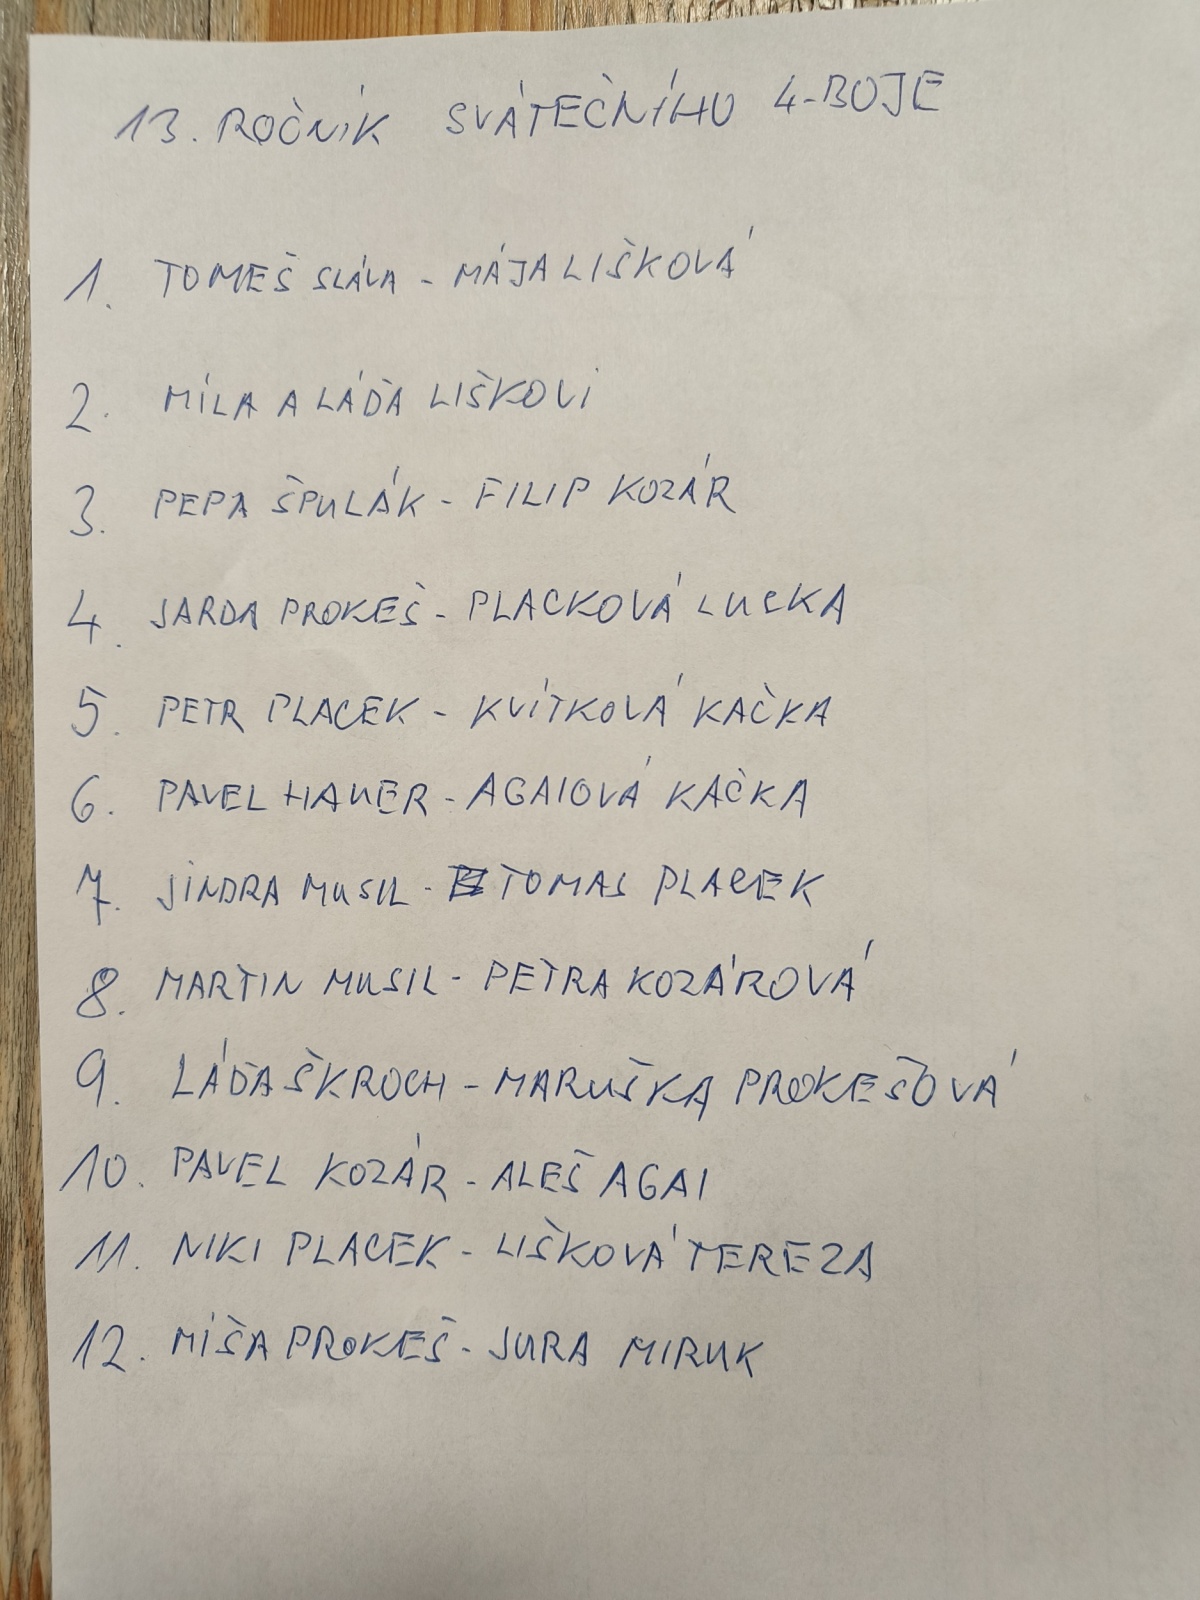 13. ROČNÍK SVÁTEČNÍHO 4-BOJE
1. TOMEŠ SLÁVA - MÁJA LIŠKOVÁ
2. MÍLA A LÁĎA LIŠKOVI
3. PEPA ŠPULÁK - FILIP KOZÁR
4. JARDA PROKEŠ - PLACKOVÁ LUCKA
5. PETR PLACEK - KVÍTKOVÁ KAČKA
6. PAVEL HAUER - AGAIOVÁ KAČKA
7. JINDRA MUSIL - TOMAS PLACEK
8. MARTIN MUSIL - PETRA KOZÁROVÁ
9. LÁĎA ŠKROCH - MARUŠKA PROKEŠOVÁ
10. PAVEL KOZÁR - ALEŠ AGAI
11. NIKI PLACEK - LIŠKOVÁ TEREZA
12. MÍŠA PROKEŠ - JURA MIRUK